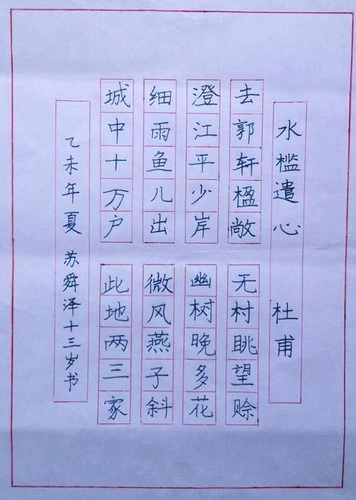 水槛遣心 杜甫
去郭轩楹敞 无村眺望赊
澄江平少岸 幽树晚多花
细雨鱼儿出 微风燕子斜
城中十万户 此地两三家
乙未年夏 苏舜泽十三岁书